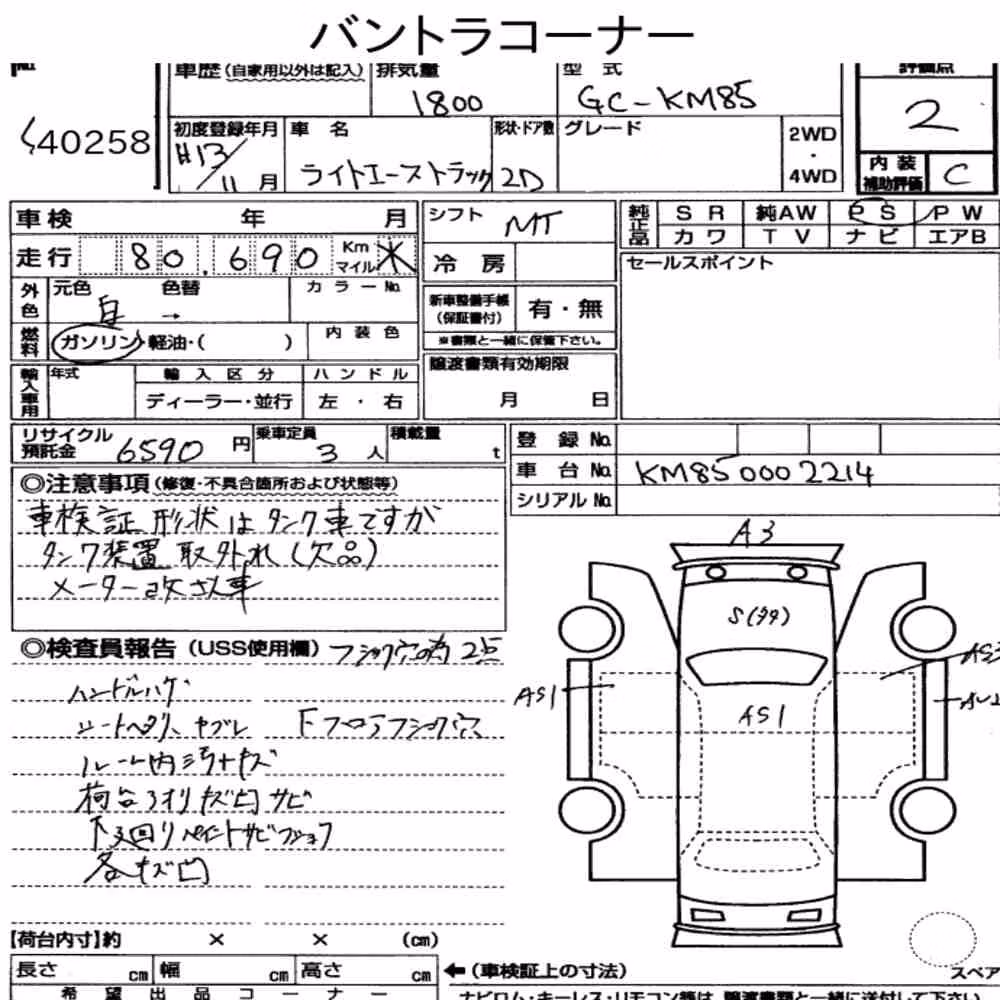 バントラコーナー
車歴 (自家用以外は記入) 排気量 型式 評価点
1800 GC-KM85 2
40258
初度登録年月 車名 形状・ドア数 グレード 2WD・4WD
H13/11月 ライトエーストラック 2D
内装補助評価 C
車検 年 月
シフト MT
純正品 SR 純AW PS PW
カワ TV ナビ エアB
走行 80,690 Km マイル
冷房
セールスポイント
外色 元色 白 色替 → カラーNo.
新車整備手帳(保証書付) 有・無
※書類と一緒に保管下さい。
燃料 ガソリン・軽油・( ) 内装色
譲渡書類有効期限
月 日
輸入車用 年式 輸入区分 ハンドル
ディーラー・並行 左・右
リサイクル預託金 6590円 乗車定員 3人 積載量 t
登録No.
車台No. KM850002214
シリアルNo.
◎注意事項 (修復・不具合箇所および状態等)
車検証形状はタンク車ですが
タンク装置取外れ(欠品)
メーター改ざん車
◎検査員報告 (USS使用欄) フショク穴 2点
ハンドルハゲ
シートヘタリ、ヤブレ Fフロアフショク穴
ルーム内汚れキズ
荷台アオリキズ凹サビ
下廻りペイントサビフショク
各キズ凹
A3
AS1
AS1
【荷台内寸】約 × × (cm)
長さ cm 幅 cm 高さ cm
←(車検証上の寸法)
スペア
希望出品コーナー
ナビロム・キーレス・リモコン等は、譲渡書類と一緒に送付して下さい